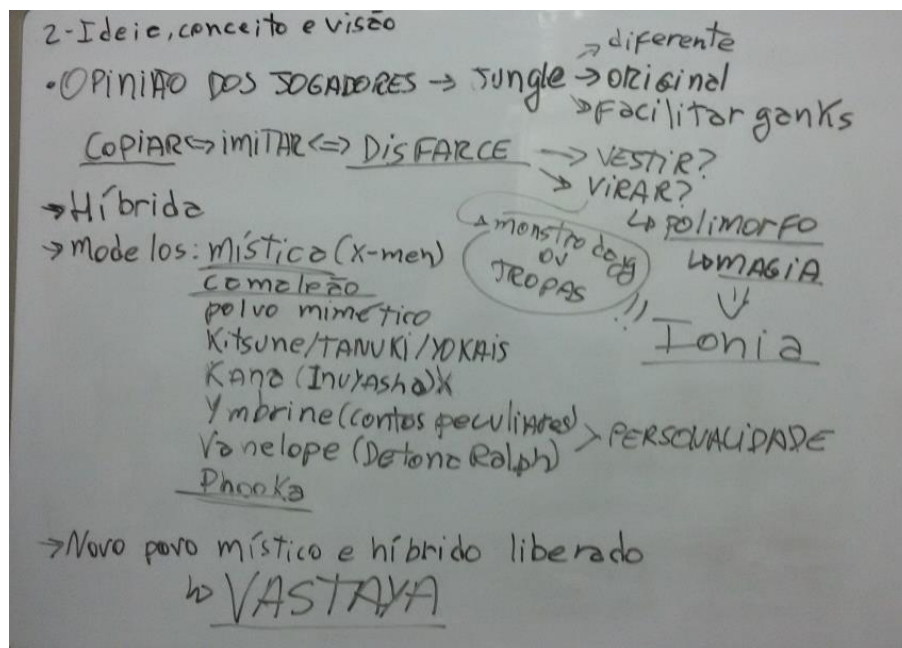 2-Ideia, conceito e visão
→ diferente
• OPINIÃO DOS JOGADORES → Jungle → original
→ Facilitar ganks
COPIAR <=> imiTAR <=> DISFARCE → VESTIR?
→ VIRAR?
↳ polimorfo
↳ MAGIA
⇓
Ionia
monstro da
OU
TROPAS
!!!
→ Híbrida
→ modelos: mística (X-men)
camaleão
polvo mimético
Kitsune/TANUKI/YOKAIS
Kana (Inuyasha)
Ymbrine (contos peculiares)
Vanelope (Detona Ralph) > PERSONALIDADE
Phooka
→ Novo povo místico e híbrido liberado
↳ VASTAYA